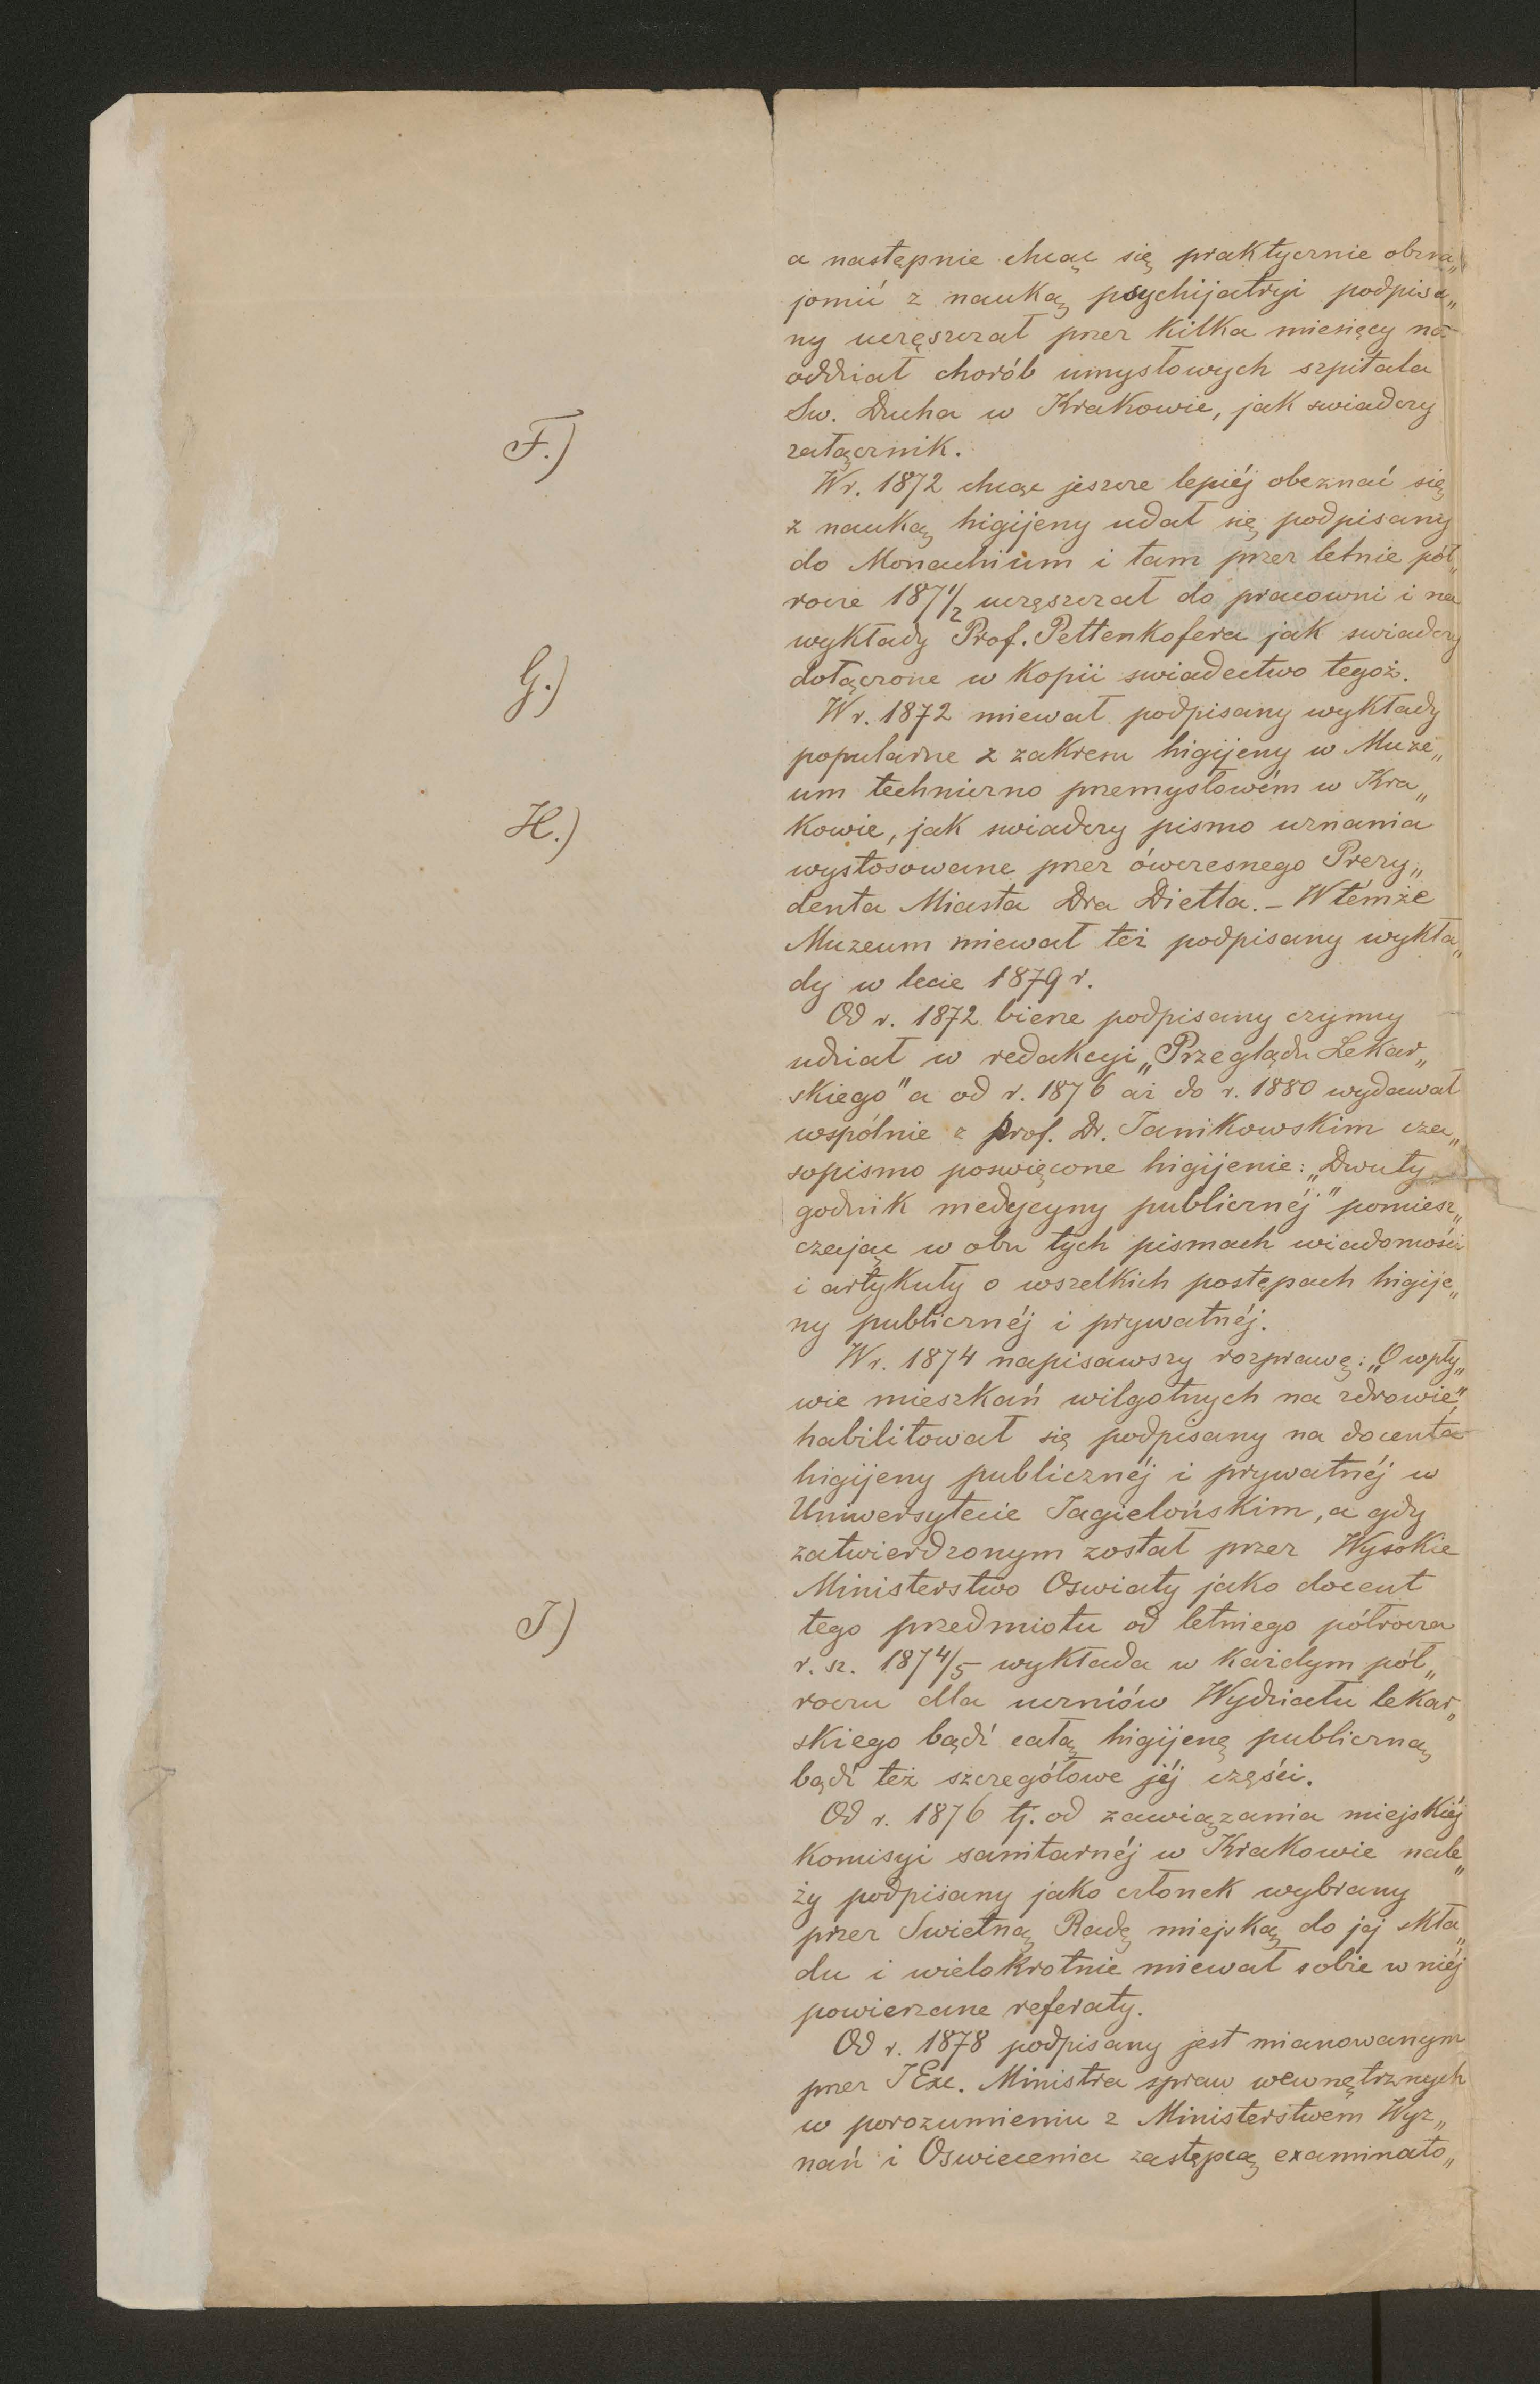 a następnie chcąc się praktycznie obzna„
jomić z nauką psychijatryi podpisa„
ny uczęszczał przez kilka miesięcy na
oddział chorób umysłowych szpitala
Sw. Ducha w Krakowie, jak swiadczy
F.)
załącznik.
W r. 1872 chcąc jeszcze lepiéj obeznać się
z nauką higijeny udał się podpisany
do Monachium i tam przez letnie pół„
rocze 187 1/2 uczęszczał do pracowni i na
wykłady Prof. Pettenkofera jak swiadczy
G.)
dołączone w kopii swiadectwo tegoż.
W r. 1872 miewał podpisany wykłady
popularne z zakresu higijeny w Muze„
um techniczno przemysłowém w Kra„
H.)
kowie, jak swiadczy pismo uznania
wystosowane przez ówczesnego Prezy„
denta Miasta Dra Dietla. – W témże
Muzeum miewał też podpisany wykła„
dy w lecie 1879 r.
Od r. 1872 bierze podpisany czynny
udział w redakcyi „Przeglądu Lekar„
skiego" a od r. 1876 aż do r. 1880 wydawał
wspólnie z prof. Dr. Janikowskim cza„
sopismo poswięcone higijenie: „Dwuty
godnik medycyny publicznéj" pomiesz„
czając w obu tych pismach wiadomości
i artykuły o wszelkich postępach higije„
ny publicznéj i prywatnéj.
W r. 1874 napisawszy rozprawę: „O wpły„
wie mieszkań wilgotnych na zdrowie",
habilitował się podpisany na docenta
higijeny publicznéj i prywatnéj w
Uniwersytecie Jagielońskim, a gdy
zatwierdzonym został przez Wysokie
Ministerstwo Oswiaty jako docent
J)
tego przedmiotu od letniego półrocza
r. sz. 187 4/5 wykłada w każdym pół„
roczu dla uczniów Wydziału lekar„
skiego bądź całą higijenę publiczną
bądź też szczegółowe jéj części.
Od r. 1876 tj. od zawiązania miejskiéj
komisyi sanitarnéj w Krakowie nale„
ży podpisany jako członek wybrany
przez Swietną Radę miejską do jej skła„
du i wielokrotnie miewał sobie w niéj
powierzane referaty.
Od r. 1878 podpisany jest mianowanym
przez JExc. Ministra spraw wewnętrznych
w porozumieniu z Ministerstwem Wyz„
nań i Oswiecenia zastępcą examinato„